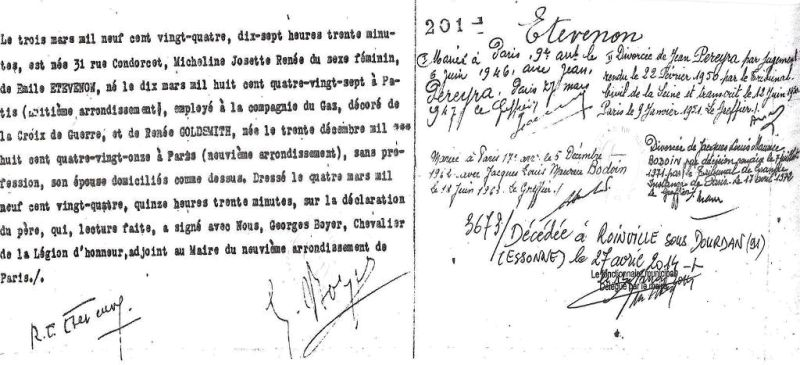 Le trois mars mil neuf cent vingt-quatre, dix-sept heures trente minu-
tes, est née 31 rue Condorcet, Micheline Josette Renée du sexe féminin,
de Emile ETEVENON, né le dix mars mil huit cent quatre-vingt-sept à Pa-
ris (huitième arrondissement), employé à la compagnie du Gaz, décoré de
la Croix de Guerre, et de Renée GOLDSMITH, née le trente décembre mil
huit cent quatre-vingt-onze à Paris (neuvième arrondissement), sans pro-
fession, son épouse domiciliés comme dessus. Dressé le quatre mars mil
neuf cent vingt-quatre, quinze heures trente minutes, sur la déclaration
du père, qui, lecture faite, a signé avec Nous, Georges Boyer, Chevalier
de la Légion d'honneur, adjoint au Maire du neuvième arrondissement de
Paris./.
201
Etevenon
Mariée à Paris 9e arrt le
6 Juin 1946 avec Jean
Pereyra. Paris 27 mars
1947 Le Greffier
II Divorcée de Jean Pereyra par jugement
rendu le 22 Février 1950 par le Tribunal
Civil de la Seine et transcrit le 12 Juin
Paris le 9 Janvier 1951. Le Greffier
Mariée à Paris 17e arrt le 5 Décembre
avec Jacques Louis Maurice Bodoin
le 18 Juin Le Greffier
Divorcée de Jacques Louis Maurice
BODOIN par décision
1971 par le Tribunal de Grande
Instance de Paris le 17 avril 1972
Le Greffier
3673/ Décédée à ROINVILLE SOUS DOURDAN (91)
(ESSONNE) le 27 avril 2014
Le fonctionnaire municipal
Délégué par le maire